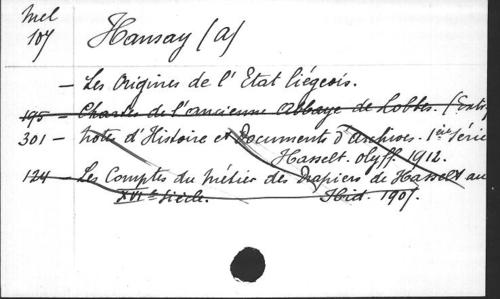 Mel
107
Hansay (A)
— Les Origines de l'Etat liégeois.
195 — Chartes de l'ancienne Abbaye de Lobbes. (Extr
301 — Notes d'Histoire et Documents d'Archives. 1ère Série
Hasselt. 1912.
124 — Les Comptes du Métier des Drapiers de Hasselt au
XVIe Siècle. Ibid. 1901.